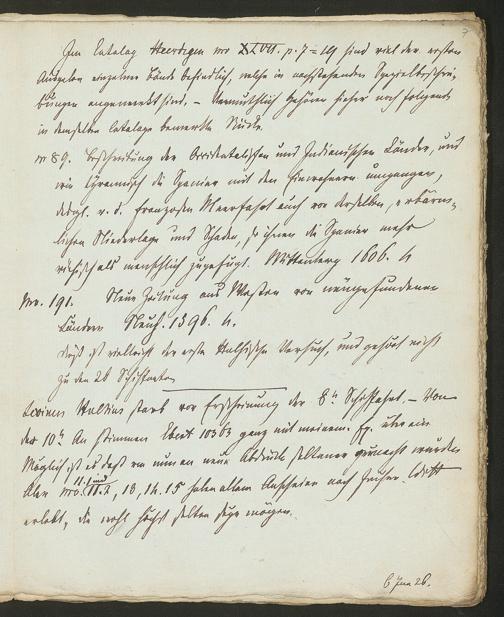 7
Im Catalog Heerdegen no XLVII. p. 7-19 sind viel der ersten
Ausgaben einzelner Bände befindlich, welche in nachstehenden Spezialbeschrei-
bungen angemerkt sind. – Vermuthlich gehören hieher noch folgende
in demselben Cataloge bemerkte Stücke.
no 89. Beschreibung der Occidentalischen und Indianischen Länder, und
wie Tyrannisch die Spanier mit den Einwohnern umgangen,
desgl. v. d. Franzosen Meerfahrt auch von derselben, erbärm-
lichen Niederlage und Schaden, so ihnen die Spanier mehr
viehisch als menschlich zugefügt. Wittenberg 1606. 4
No. 191. Neue Zeitung aus Westen von neugefundenen
Ländern 1596. 4.
dieß ist vielleicht der erste Hulsische Versuch, und gehört nicht
zu den 26 Schiffarten
Levinus Hulsius starb vor Erscheinung der 8n Schiffahrt. – Von
der 10n An stimmen Ebert 10363 ganz mit meinem Ex. überein
Möglich ist es daß von nun an neue Abdrücke seltener gemacht wurden
Aber No. 11. 1 und 11. 2, 13, 14. 15 haben allem Anscheine nach
erlebt, die wohl höchst selten seyn mögen.
6 Jun 26.